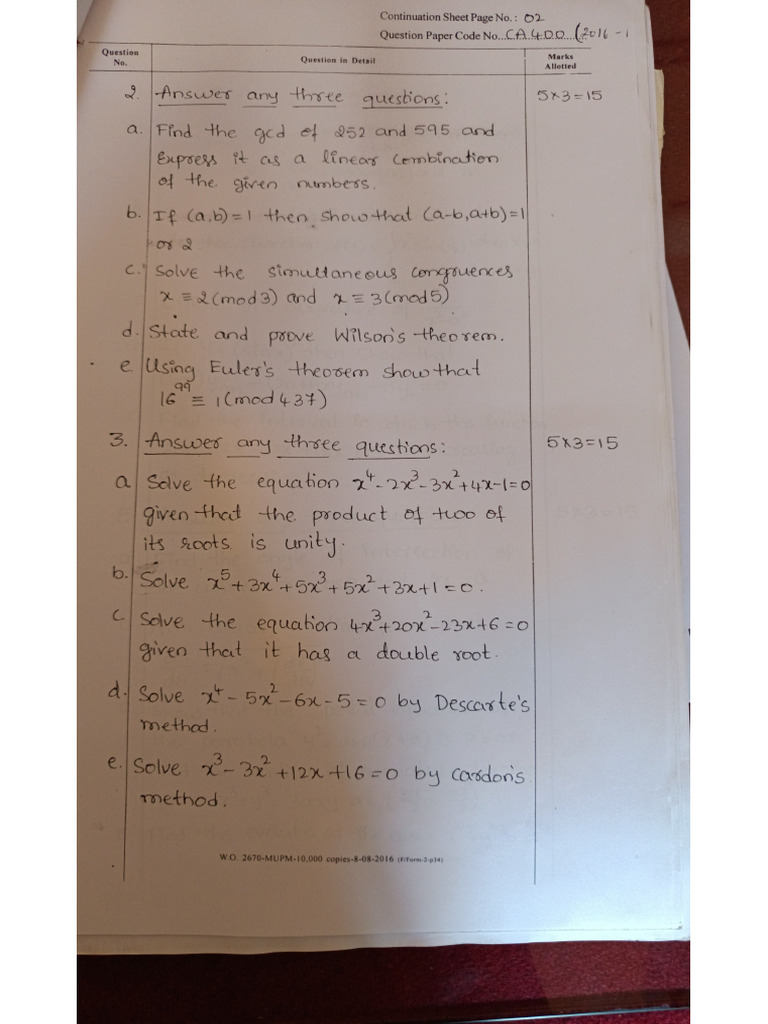 Continuation Sheet Page No. : 02
Question Paper Code No...CA400...(2016 - 1
Question No. Question in Detail Marks Allotted
2. Answer any three questions: 5×3=15
a. Find the gcd of 252 and 595 and
Express it as a linear combination
of the given numbers.
b. If (a,b)=1 then show that (a-b,a+b)=1
or 2
c. Solve the simultaneous congruences
x ≡ 2(mod3) and x ≡ 3(mod5)
d. State and prove Wilson's theorem.
e Using Euler's theorem show that
16⁹⁹ ≡ 1(mod 437)
3. Answer any three questions: 5×3=15
a Solve the equation x⁴-2x³-3x²+4x-1=0
given that the product of two of
its roots is unity.
b. Solve x⁵+3x⁴+5x³+5x²+3x+1=0.
c Solve the equation 4x³+20x²-23x+6=0
given that it has a double root.
d. Solve x⁴-5x²-6x-5=0 by Descarte's
method.
e. Solve x³-3x²+12x+16=0 by Cardon's
method.
W.O. 2670-MUPM-10,000 copies-8-08-2016 (F/Form-2-p14)